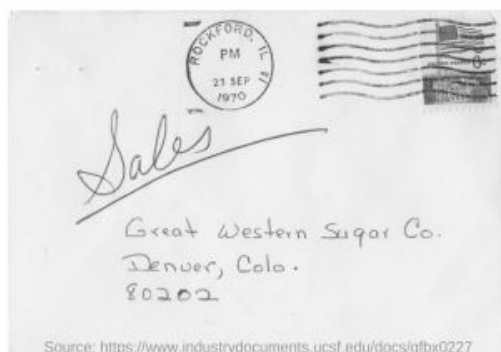 ROCKFORD, IL
PM
23 SEP
1970
Sales
Great Western Sugar Co.
Denver, Colo.
80202
Source: https://www.industrydocuments.ucsf.edu/docs/qfbx0227